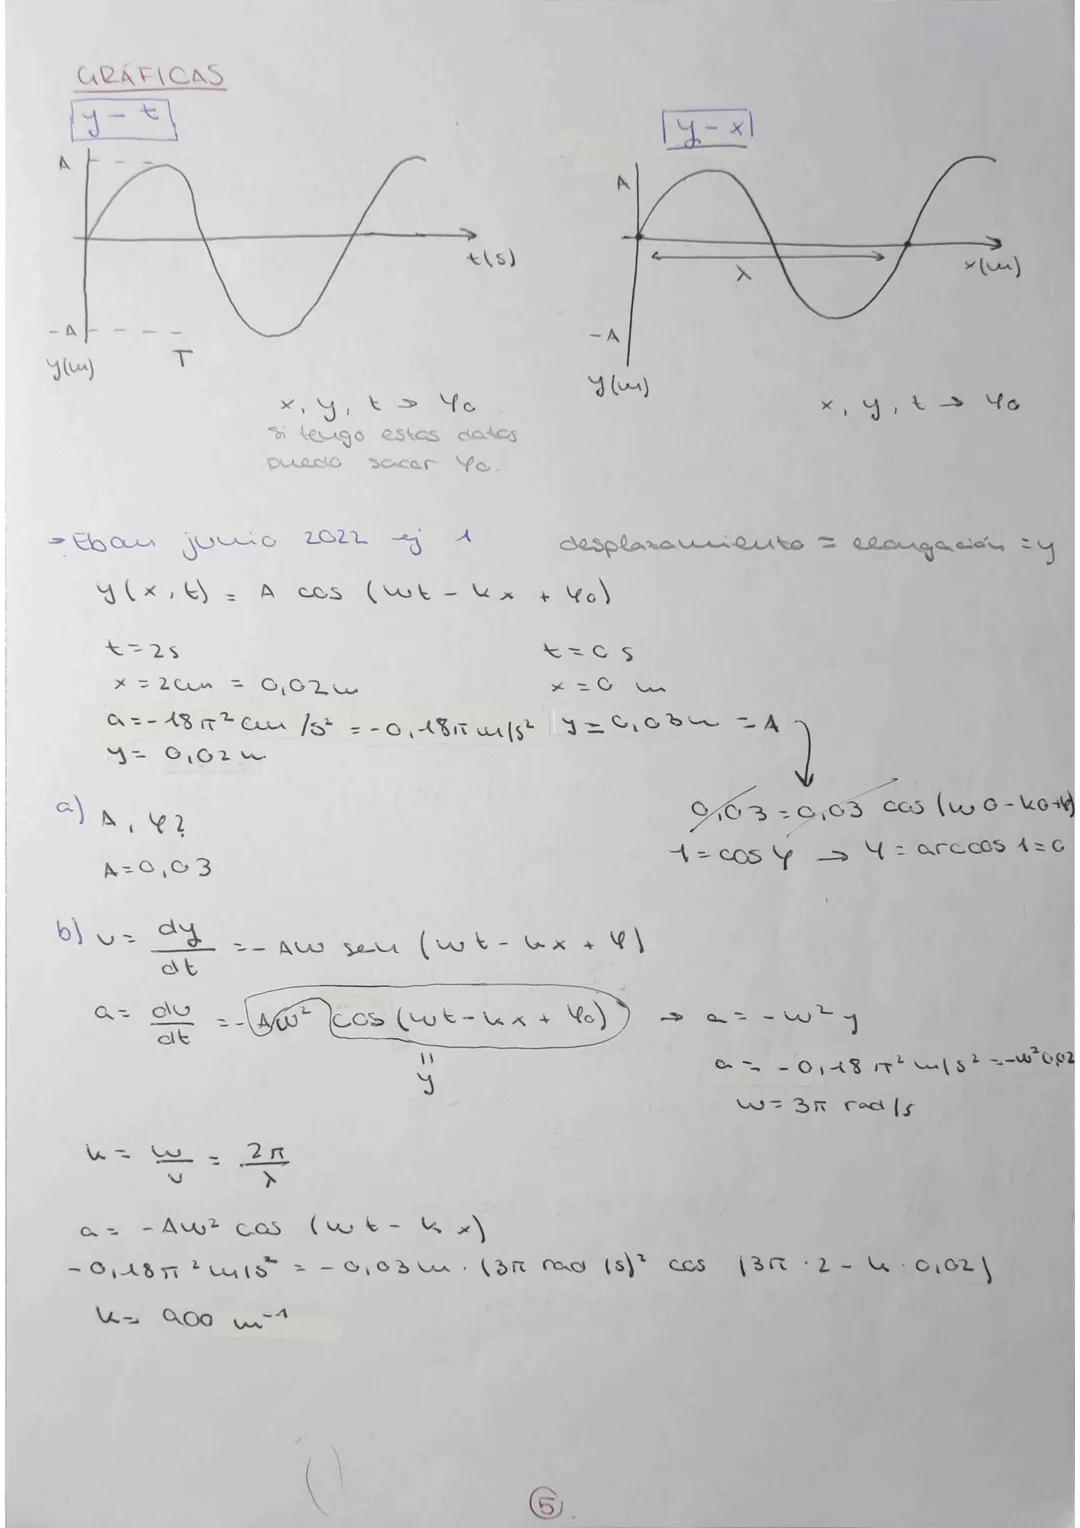 GRÁFICAS
y - t
A
t(s)
-A
T
y(m)
x, y, t → φ₀
si tengo estos datos
puedo sacar φ₀.
y - x
A
λ
x(m)
-A
y(m)
x, y, t → φ₀
→ Ebau junio 2022 ej 1
desplazamiento = elongación = y
y(x,t) = A cos (ωt - kx + φ₀)
t = 2s
t = 0 s
x = 2cm = 0,02m
x = 0 m
a = -18π² cm/s² = -0,18π m/s²
y = 0,03m = A
y = 0,02 m
0,03 = 0,03 cos (ω0 - k0 + φ)
1 = cos φ → φ = arccos 1 = 0
a) A, φ?
A = 0,03
b) v = dy/dt = - Aω sen (ωt - kx + φ)
a = dv/dt = - Aω² cos (ωt - kx + φ₀) → a = -ω² y
"
y
a = -0,18 π² m/s² = -ω² 0,02
ω = 3π rad/s
k = ω/v = 2π/λ
a = -Aω² cos (ωt - kx)
-0,18π² m/s² = -0,03m · (3π rad/s)² cos (3π · 2 - k · 0,02)
k = 900 m⁻¹
5